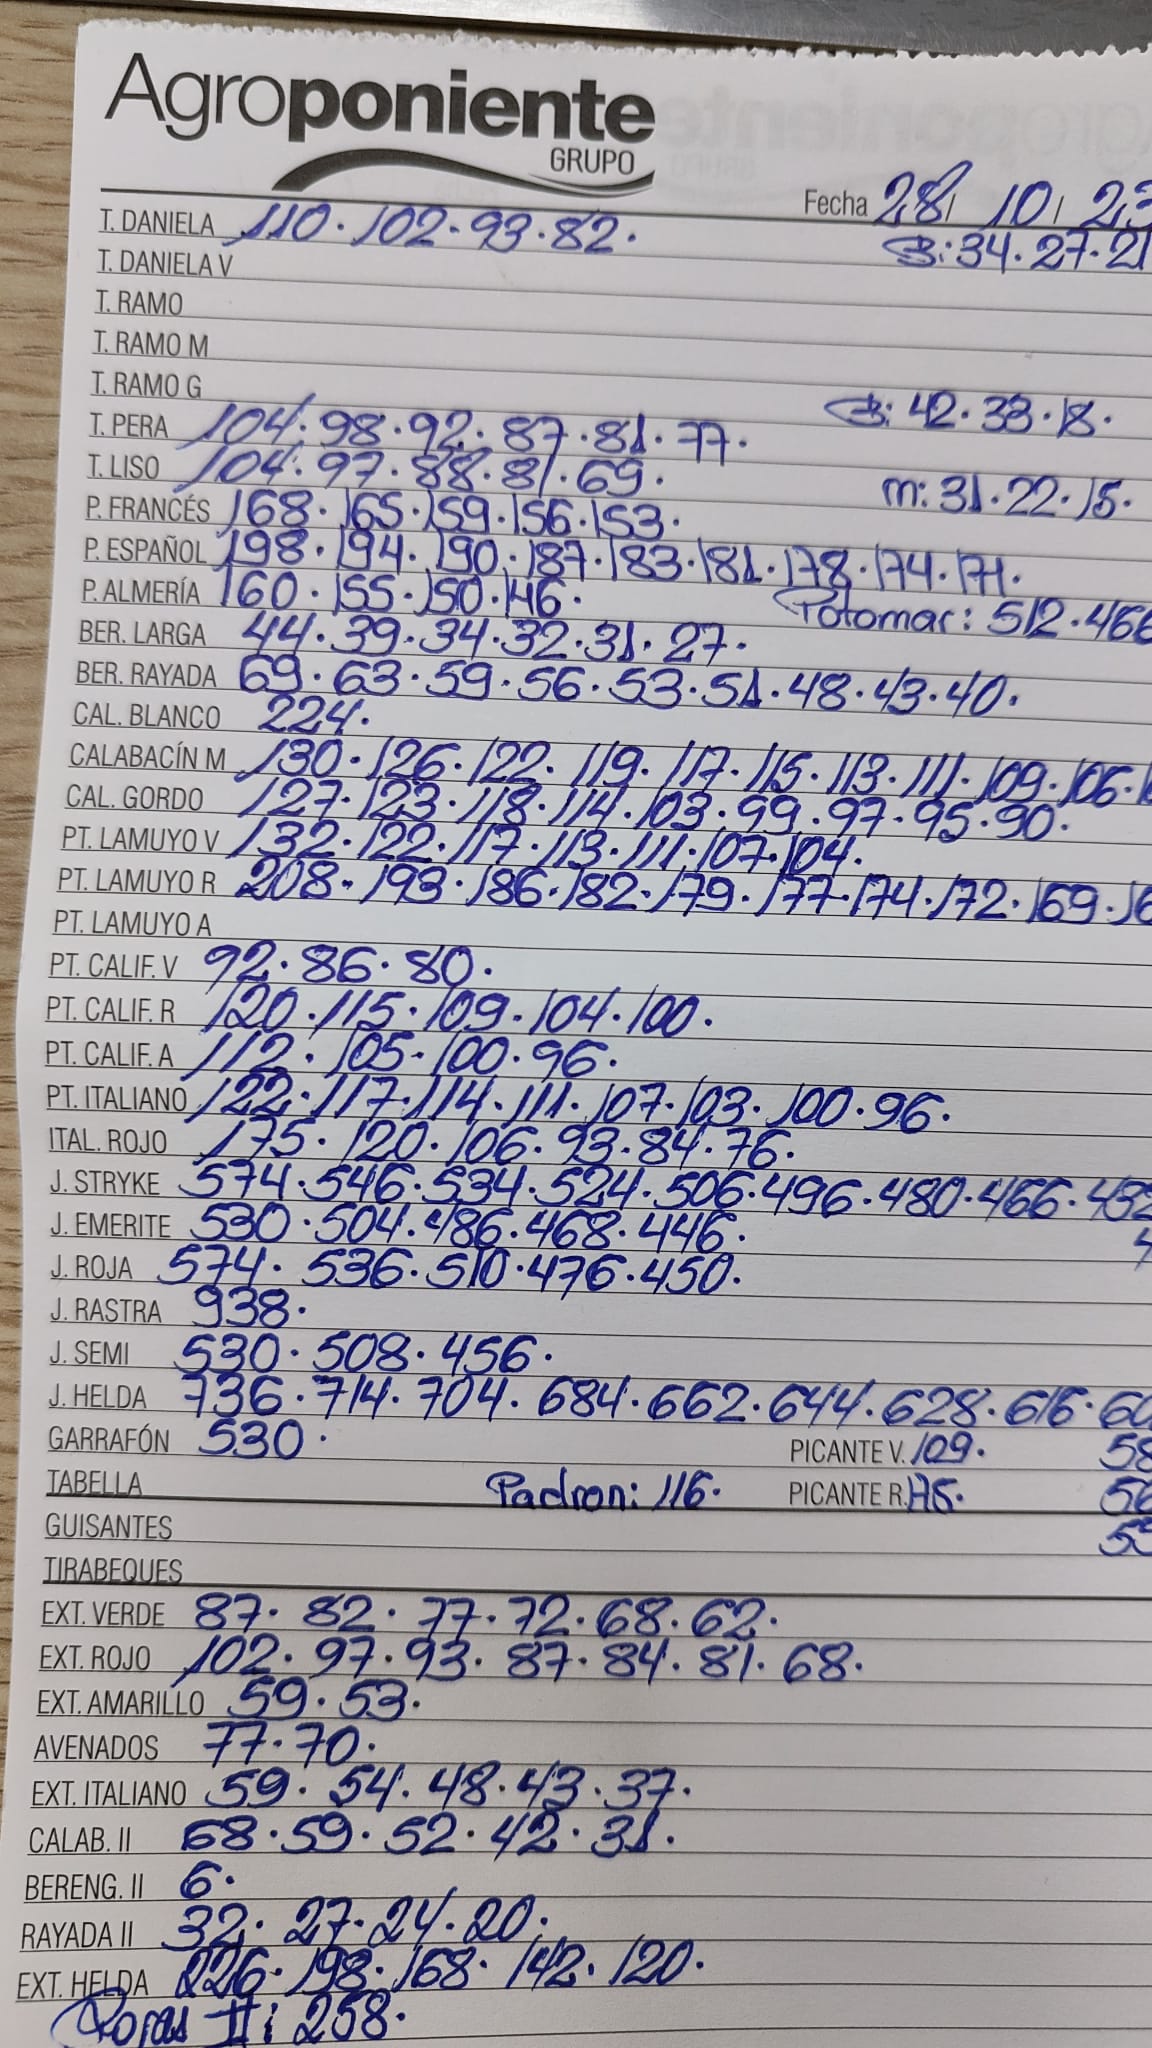 Agroponiente
GRUPO
Fecha 28/ 10/ 23
T. DANELA 110. 102. 93. 82.
B: 34. 27. 21
T. DANIELA V
T. RAMO
T. RAMO M
T. RAMO G
B: 42. 33. 18.
T. PERA 104. 98. 92. 87. 81. 77.
T. LISO 104. 97. 88. 81. 69.
m: 31. 22. 15.
P. FRANCÉS 168. 165. 159. 156. 153.
P. ESPAÑOL 198. 194. 190. 187. 183. 181. 178. 174. 171.
P. ALMERÍA 160. 155. 150. 146.
Totomar: 512. 466
BER. LARGA 44. 39. 34. 32. 31. 27.
BER. RAYADA 69. 63. 59. 56. 53. 51. 48. 43. 40.
CAL. BLANCO 224.
CALABACÍN M 130. 126. 122. 119. 117. 115. 113. 111. 109. 106.
CAL. GORDO 127. 123. 118. 114. 103. 99. 97. 95. 90.
PT. LAMUYO V 132. 122. 117. 113. 111. 107. 104.
PT. LAMUYO R 208. 193. 186. 182. 179. 177. 174. 172. 169.
PT. LAMUYO A
PT. CALIF. V 92. 86. 80.
PT. CALIF. R 120. 115. 109. 104. 100.
PT. CALIF. A 112. 105. 100. 96.
PT. ITALIANO 122. 117. 114. 111. 107. 103. 100. 96.
ITAL. ROJO 175. 120. 106. 93. 84. 76.
J. STRYKE 574. 546. 534. 524. 506. 496. 480. 466. 432
J. EMERITE 530. 504. 486. 468. 446.
J. ROJA 574. 536. 510. 476. 450.
J. RASTRA 938.
J. SEMI 530. 508. 456.
J. HELDA 736. 714. 704. 684. 662. 644. 628. 616.
GARRAFÓN 530.
PICANTE V. 109.
TABELLA
Padron: 116.
PICANTE R. 175.
GUISANTES
TIRABEQUES
EXT. VERDE 87. 82. 77. 72. 68. 62.
EXT. ROJO 102. 97. 93. 87. 84. 81. 68.
EXT. AMARILLO 59. 53.
AVENADOS 77. 70.
EXT. ITALIANO 59. 54. 48. 43. 37.
CALAB. II 68. 59. 52. 42. 31.
BERENG. II 6.
RAYADA II 32. 27. 24. 20.
EXT. HELDA 226. 198. 168. 142. 120.
Rojas II: 258.